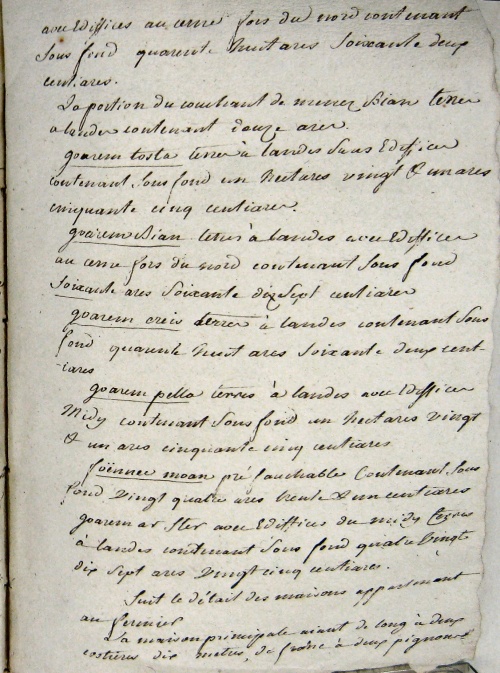 avec Ediffices au cerne fors du nord contenant
Sous fond quarente huit ares Soixante deux
centiares.
La portion du couchant de menez Bian terre
a landes contenant douze ares.
goarem tosta terre à landes Sans Ediffice
contenant Sous fond un hectares vingt & un ares
cinquante cinq centiares.
goarem Bian terres à landes avec Ediffices
au cerne fors du nord contenant Sous fond
Soixante ares Soixante dix Sept centiares
goarem creis terres à landes contenant Sous
fond quarante huit ares Soixante deux cent-
iares
goarem pella terres à landes avec Ediffices
Midy contenant Sous fond un hectares vingt
& un ares cinquante cinq centiares
foënnec moan pré fauchable Contenant Sous
fond Vingt quatre ares trente & un centiares
goarem ar Ster avec Ediffices du midy terres
à landes contenant Sous fond quatre Vingt
dix Sept ares Vingt cinq centiares.
Suit le détail des maisons appartenant
au fermier
La maison principale aiant de long à deux
costieres dix metres, de franc à deux pignons